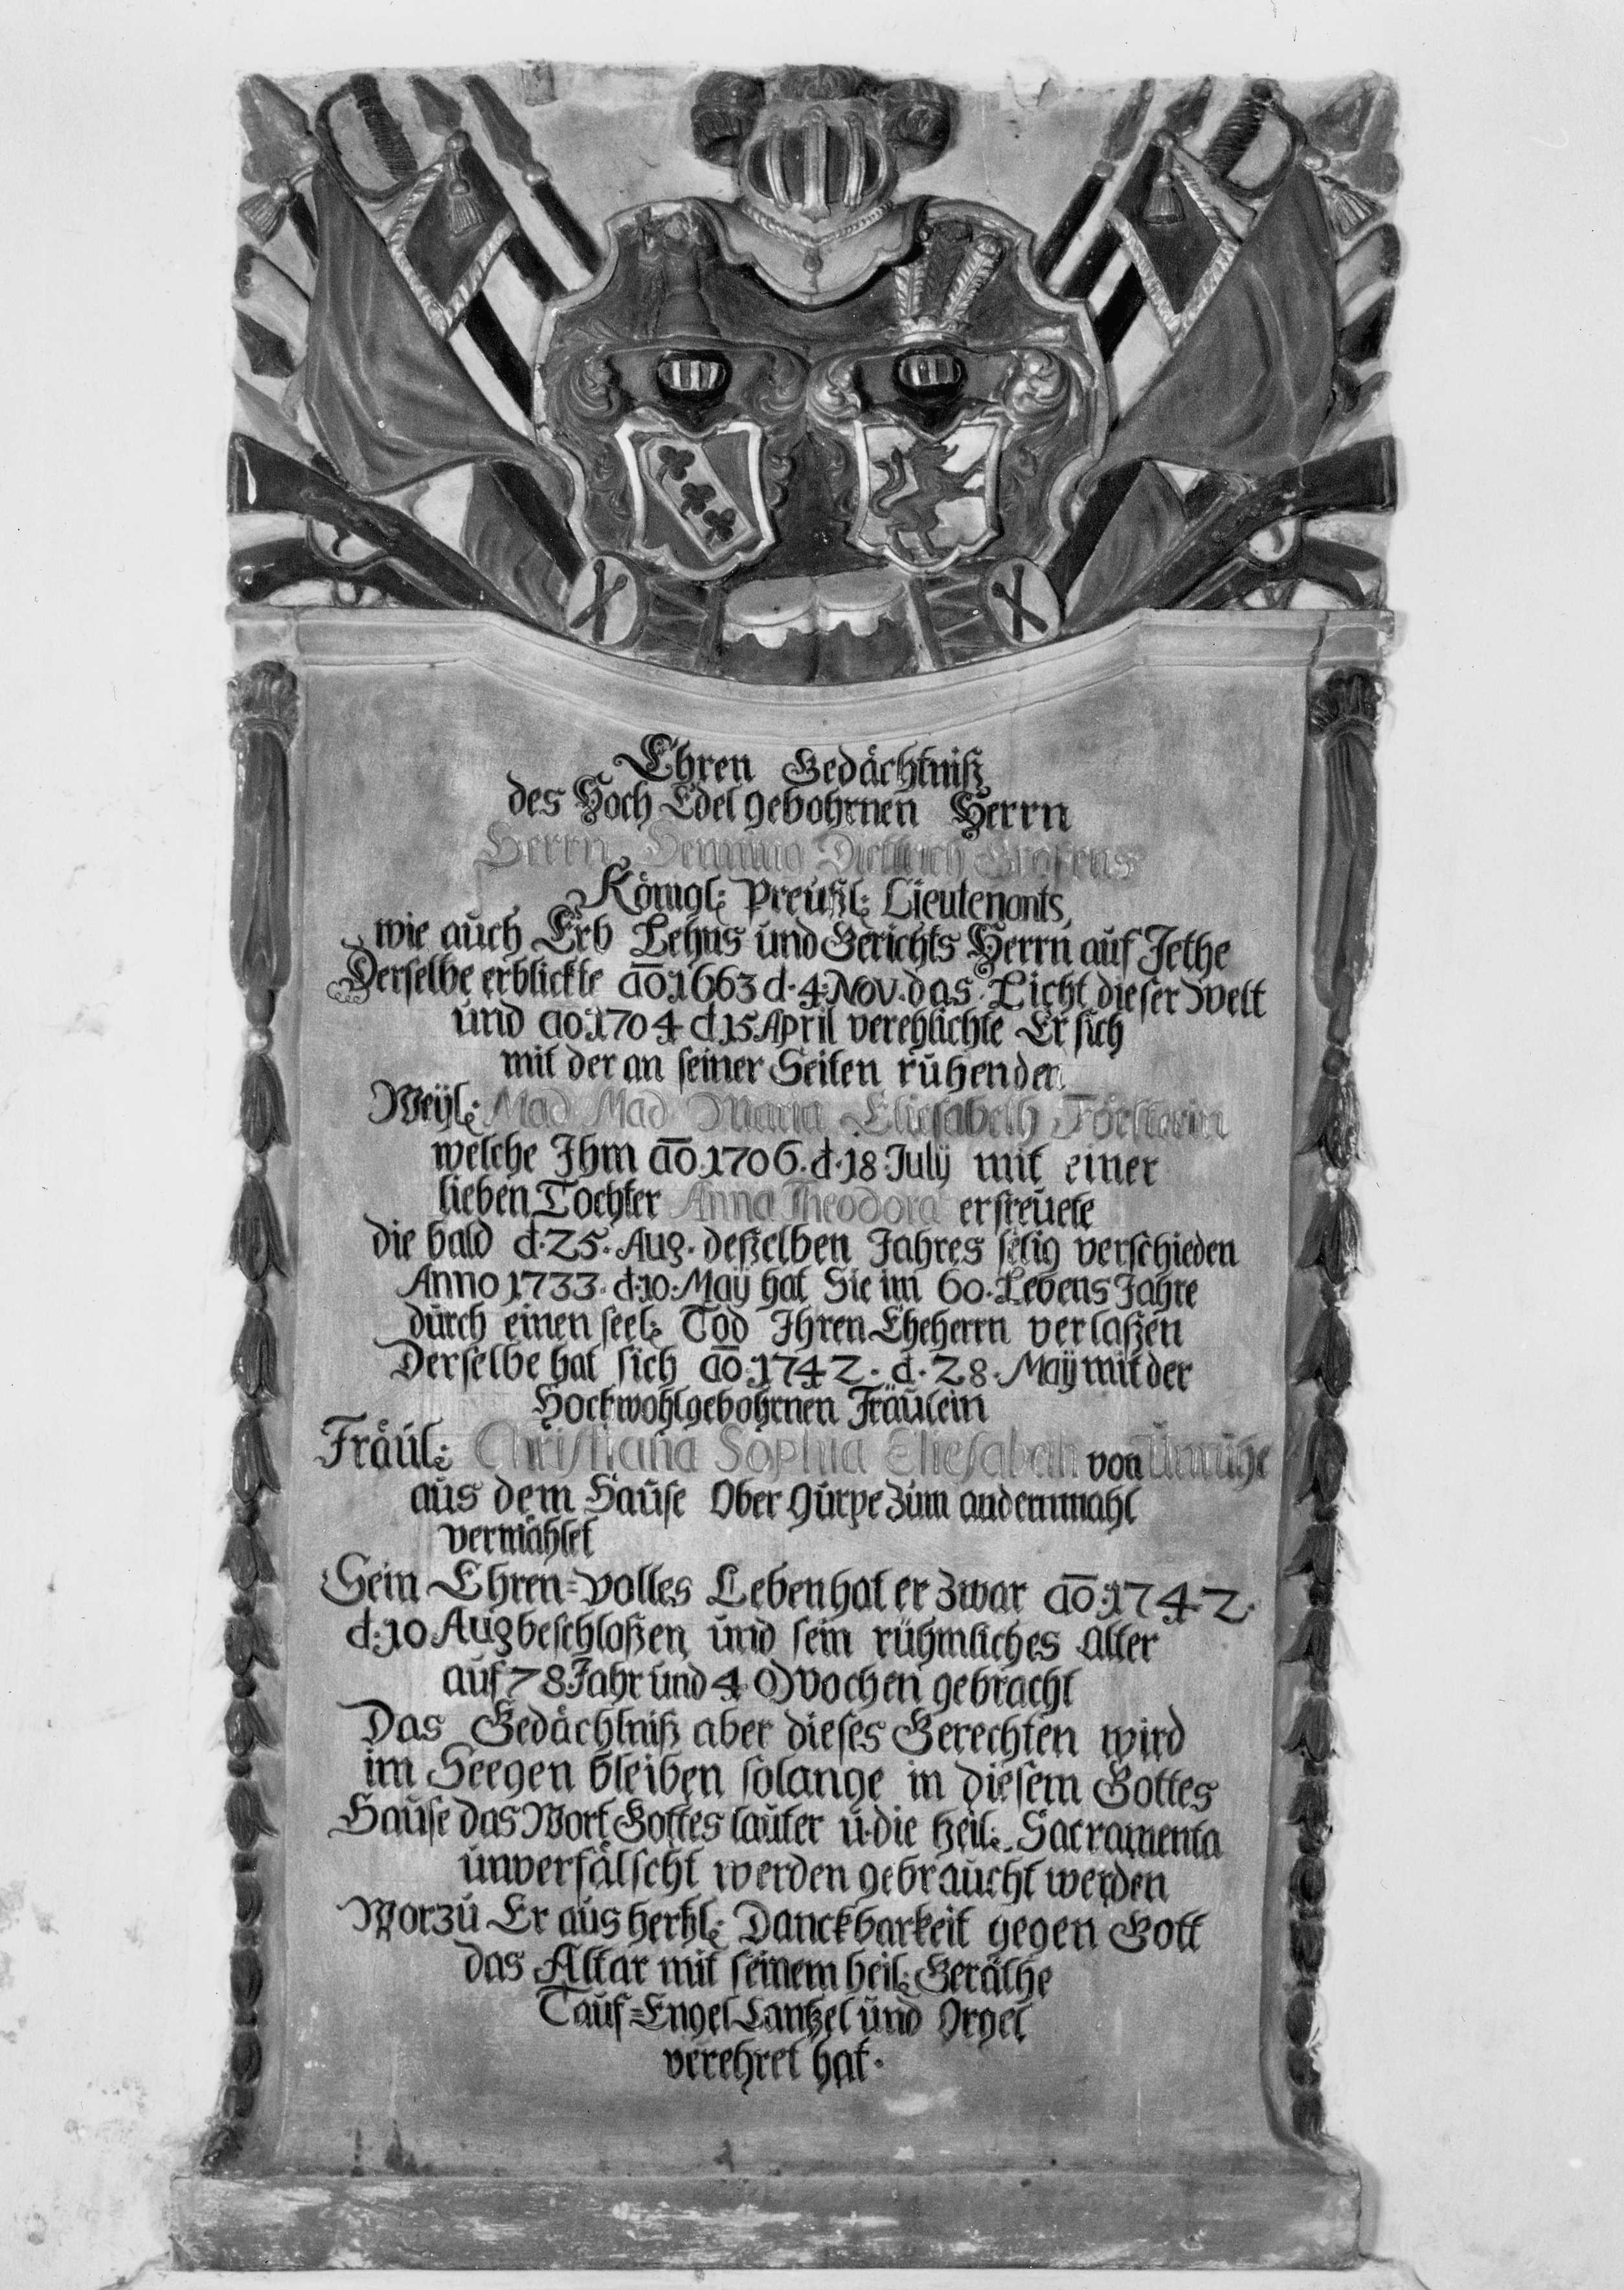 Ehren Gedächtniß
des Hoch Edelgebohrnen Herrn
Herrn Henning Dietrich
Königl: Preußl: Lieutenants,
wie auch Erb Lehns und Gerichts Herrn auf Jethe
Derselbe erblickte ao: 1663 d. 4. Nov. das Licht dieser Welt
und ao: 1704 d. 15. April verehlichte Er sich
mit der an seiner Seiten ruhenden
Weÿl: Mad: Mad: Maria Eliesabeth
welche Ihm ao: 1706. d. 18 Julÿ mit einer
lieben Tochter Anna Theodora erfreuete
die bald d. 25. Aug. deßelben Jahres selig verschieden
Anno 1733. d. 10. Maÿ hat Sie im 60. Lebens Jahre
durch einen seel: Tod Ihren Eheherrn verlaßen
Derselbe hat sich ao: 1742. d. 28. Maÿ mit der
Hochwohlgebohrnen Fräulein
Fräul: Christiana Sophia Eliesabeth von Unruhe
aus dem Hause Ober zum andernmahl
vermählet
Sein Ehren=volles Leben hat er zwar ao: 1742.
d. 10 Aug beschloßen und sein rühmliches Alter
auf 78 Jahr und 40 Wochen gebracht
Das Gedächtniß aber dieses Gerechten wird
im Seegen bleiben solange in diesem Gottes
Hause das Wort Gottes lauter u. die heil: Sacramenta
unverfälscht werden gebraucht werden
Worzu Er aus hertzl: Danckbarkeit gegen Gott
das Altar mit seinem heil: Geräthe
Tauf=Engel Cantzel und Orgel
verehret hat.